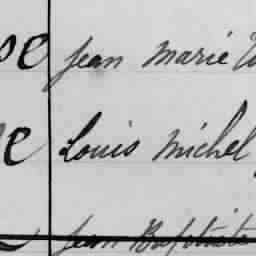 Jean Marie
Louis Michel
Jean Baptiste